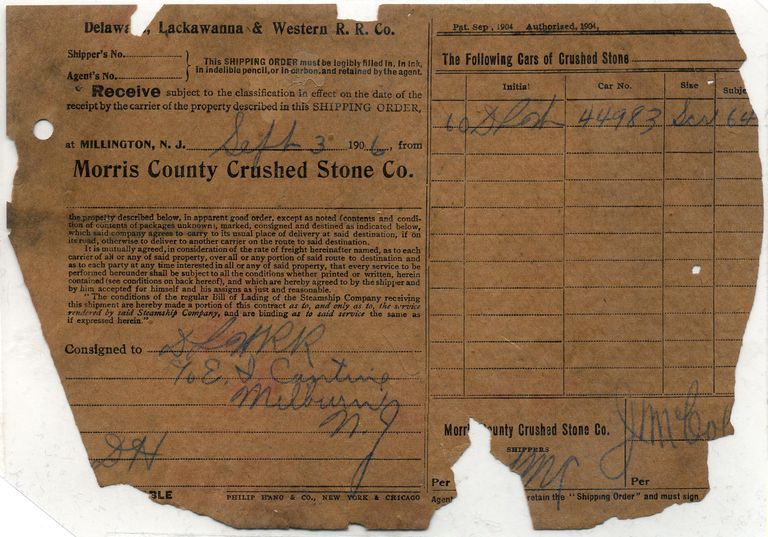 Lackawanna & Western R. R. Co.
Shipper's No.
Agent's No.
This SHIPPING ORDER must be legibly filled in, in ink,
in indelible pencil, or in carbon, and retained by the agent.
Receive subject to the classification in effect on the date of the
receipt by the carrier of the property described in this SHIPPING ORDER,
at MILLINGTON, N. J. Sept 3 1906, from
Morris County Crushed Stone Co.
the property described below, in apparent good order, except as noted (contents and condi-
tion of contents of packages unknown), marked, consigned and destined as indicated below,
which said company agrees to carry to its usual place of delivery at said destination, if on
its road, otherwise to deliver to another carrier on the route to said destination.
It is mutually agreed, in consideration of the rate of freight hereinafter named, as to each
carrier of all or any of said property, over all or any portion of said route to destination and
as to each party at any time interested in all or any of said property, that every service to be
performed hereunder shall be subject to all the conditions whether printed or written, herein
contained (see conditions on back hereof), and which are hereby agreed to by the shipper and
by him accepted for himself and his assigns as just and reasonable.
"The conditions of the regular Bill of Lading of the Steamship Company receiving
this shipment are hereby made a portion of this contract as to, and only as to, the service
rendered by said Steamship Company, and are binding as to said service the same as
if expressed herein."
Consigned to
To E. I. Cantine
Milburn
N. J
DH
PHILIP HANO & CO., NEW YORK & CHICAGO
Pat. Sep , 1904 Authorized, 1904,
The Following Cars of Crushed Stone
Initial Car No. Size
60 44983 Scr 64
County Crushed Stone Co.
SHIPPERS
Per Per
Agent retain the "Shipping Order" and must sign